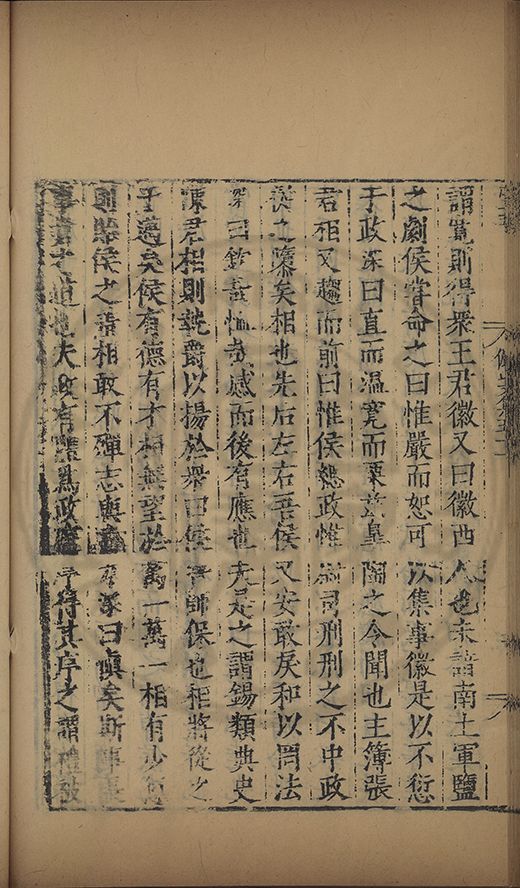 謂寬則得衆王君徽又曰徽西人也未諳南土軍鹽
之劇侯嘗命之曰惟嚴而恕可以集事徽是以不愆
于政深曰直而溫寬而栗玆臯陶之令聞也主簿張
君相又趨而前曰惟侯總政惟相司刑刑之不中政
獘之隳矣相也先后左右吾侯又安敢戾和以罔法
深曰欽哉恤哉感而後有應也夫是之謂錫類典史
陳君相則執爵以揚於衆曰侯師保也相將從之
于邁矣侯有德有才相無望於萬一萬一相有少
則懸侯之淸相敢不殫志輿深曰愼矣斯
事責之道也夫政有體爲政得其序之謂禮鼓